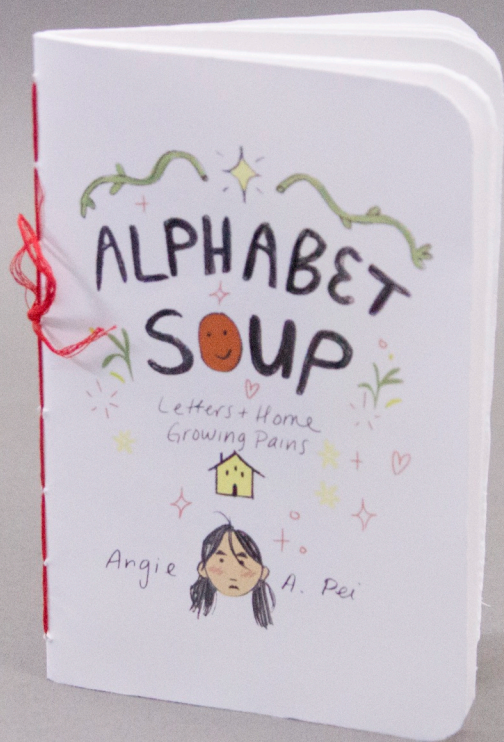 ALPHABET
SOUP
Letters + Home
Growing Pains
Angie A. Pei